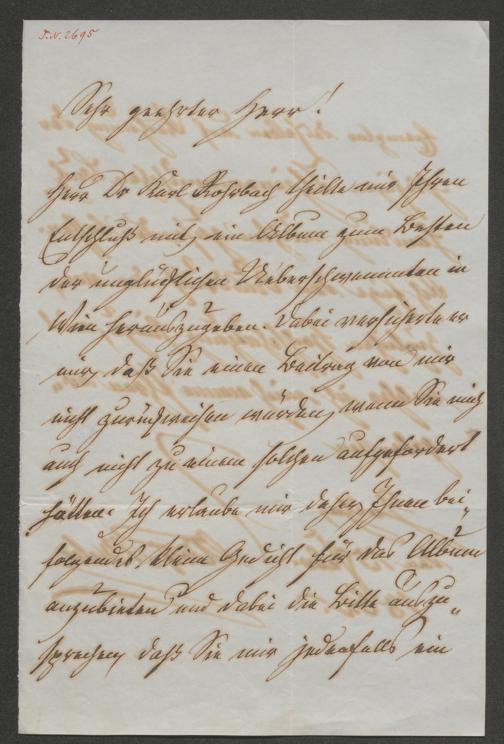 I.N. 2695
Sehr geehrter Herr!
Herr Dr Karl Rohrbach theilte mir Ihren
Entschluß mit, ein Album zum Besten
der unglücklichen Ueberschwemmten in
Wien herauszugeben. Dabei versicherte er
mir, daß Sie einen Beitrag von mir
nicht zurückweisen würden, wenn Sie mich
auch nicht zu einem solchen aufgefordert
hätten. Ich erlaube mir daher, Ihnen bei„
folgendes kleine Gedicht für das Album
anzubieten und dabei die Bitte auszu„
sprechen, daß Sie mir jedenfalls ein